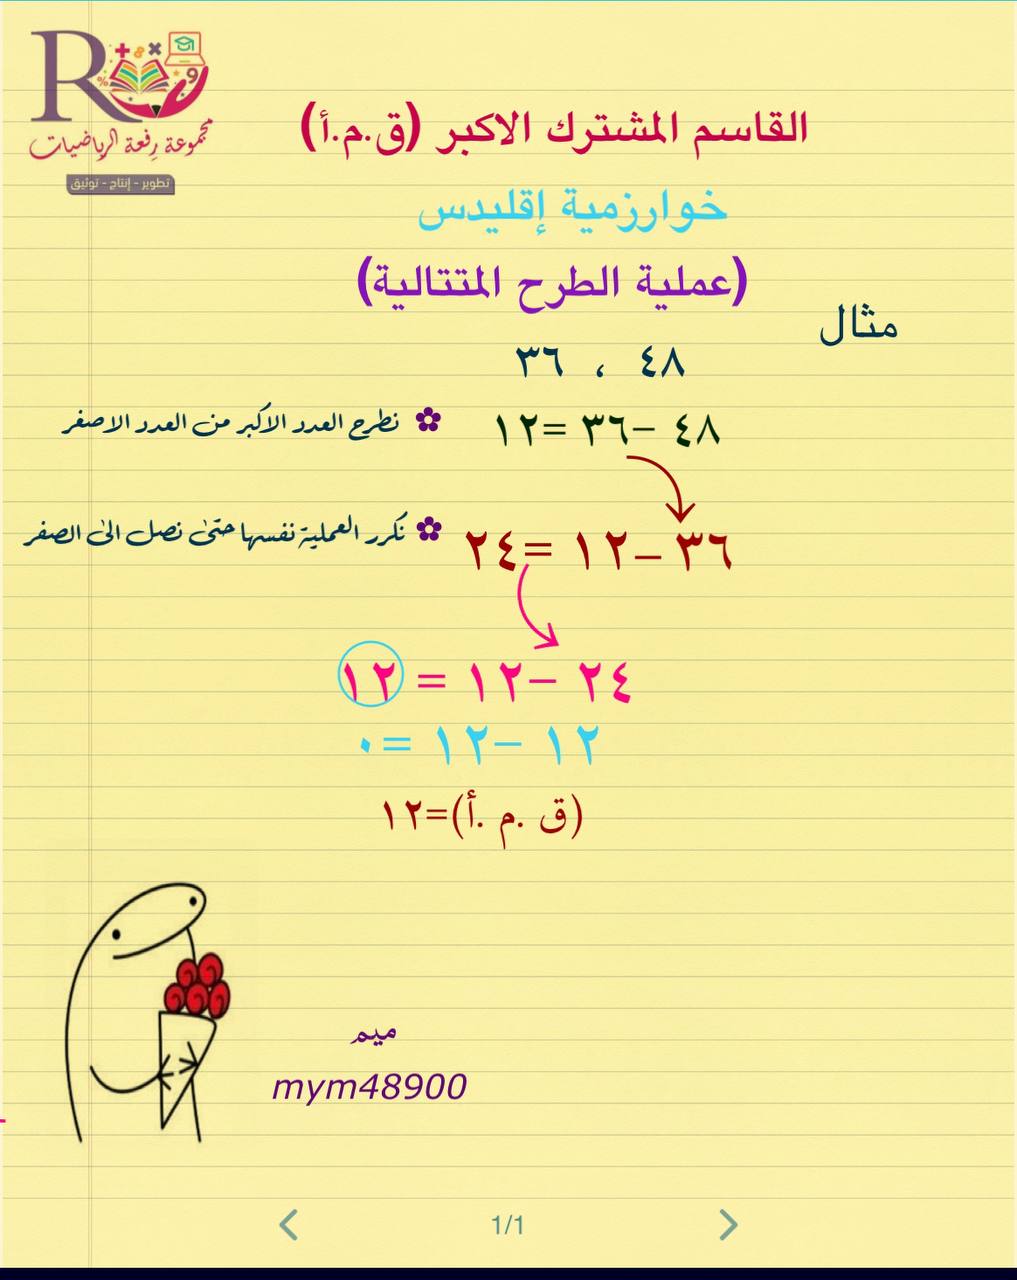 R
مجموعة رفعة الرياضيات
تطوير - إنتاج - توثيق
القاسم المشترك الاكبر (ق.م.أ)
خوارزمية إقليدس
(عملية الطرح المتتالية)
مثال
٤٨ ، ٣٦
٤٨ – ٣٦ = ١٢ ✿ نطرح العدد الاكبر من العدد الاصغر
٣٦ – ١٢ = ٢٤ ✿ نكرر العملية نفسها حتىٰ نصل الىٰ الصفر
٢٤ – ١٢ = ١٢
١٢ – ١٢ = ٠
(ق .م .أ)=١٢
ميم
mym48900
1/1